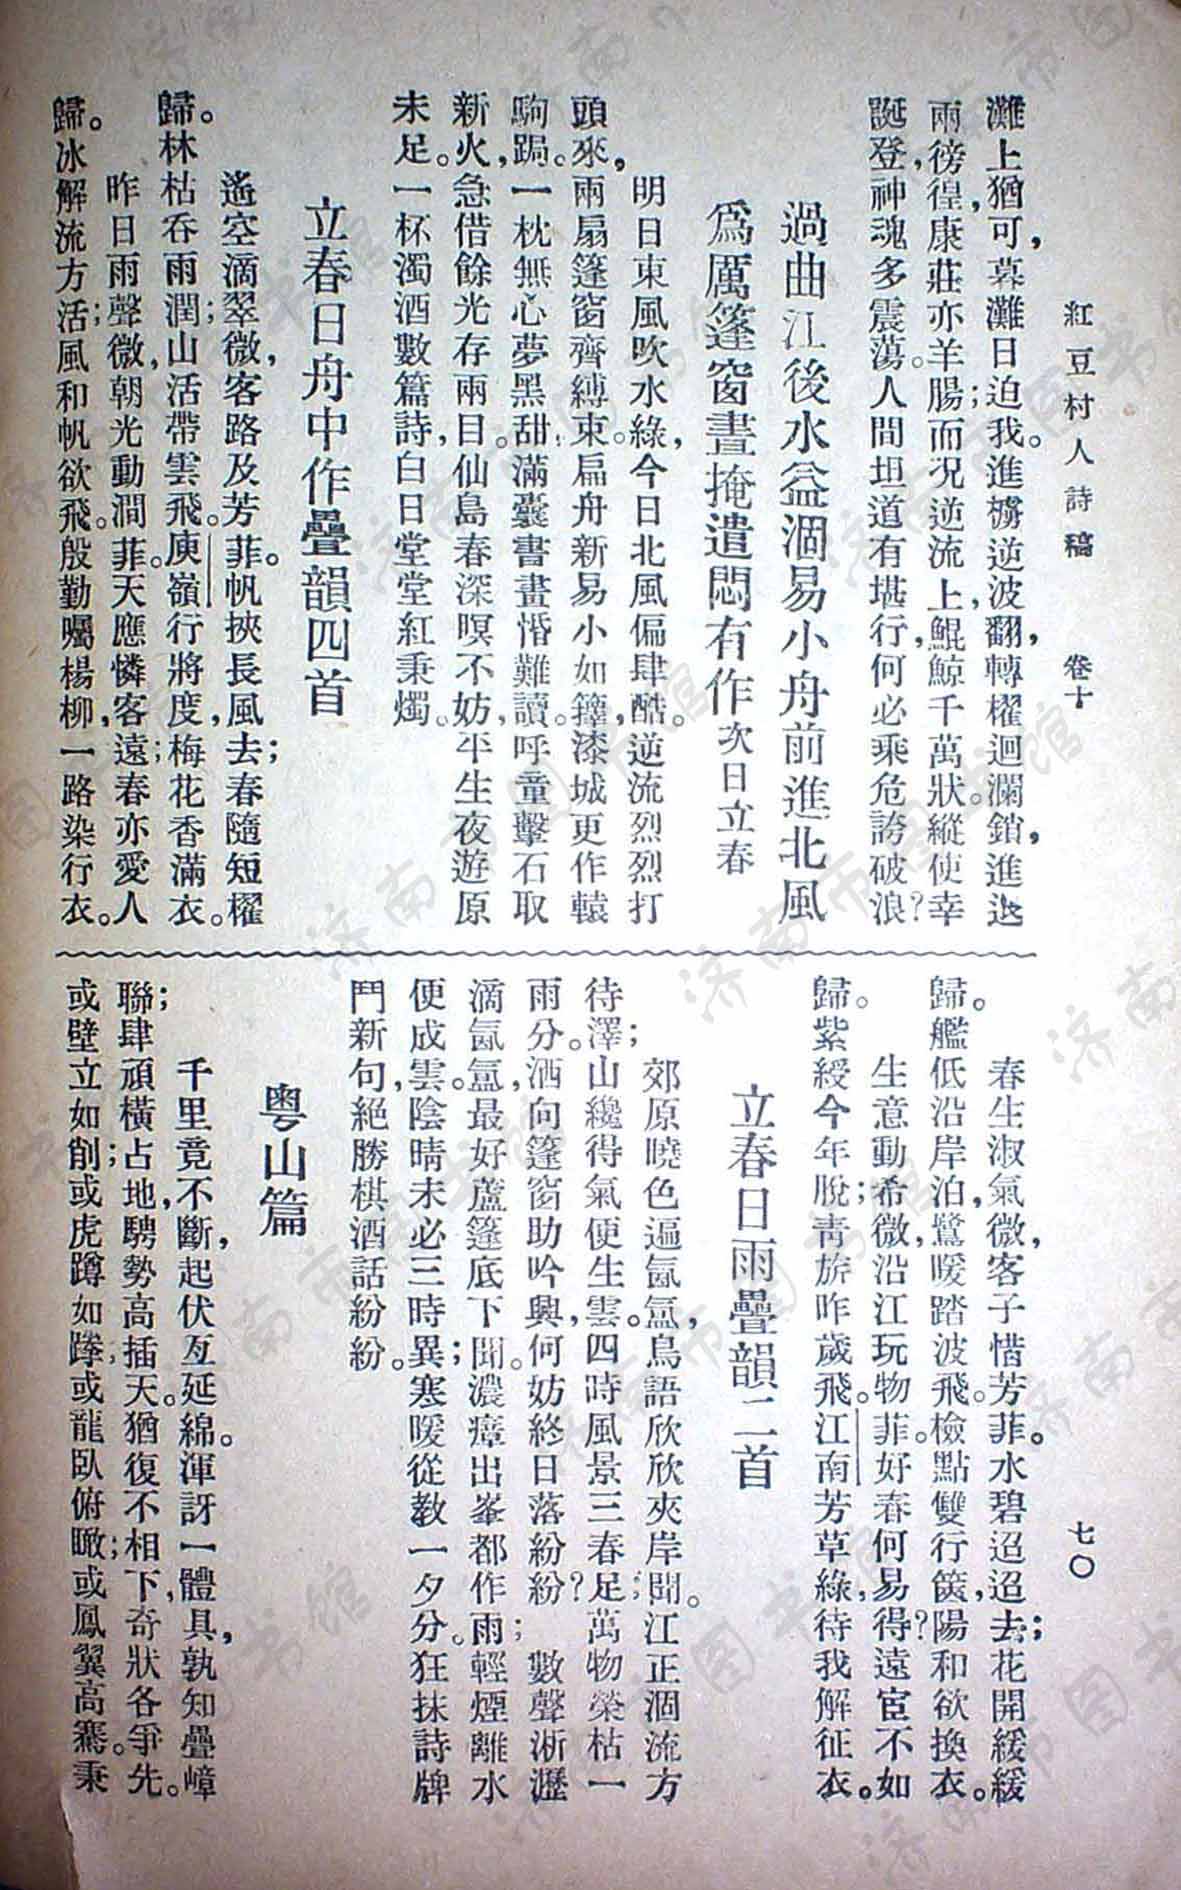 紅豆村人詩稿　卷十　七〇
灘上猶可，暮灘日迫我。進櫓逆波翻，轉櫂迴瀾鎖，進退
兩徬徨，康莊亦羊腸；而况逆流上，鯤鯨千萬狀。縱使幸
誕登，神魂多震蕩。人間坦道有堪行，何必乘危誇破浪？
過曲江後水益涸易小舟前進北風
爲厲篷窗晝掩遣悶有作次日立春
明日東風吹水綠，今日北風偏肆酷。逆流烈烈打
頭來，兩扇篷窗齊縛束。扁舟新易小如籜，漆城更作轅
駒跼。一枕無心夢黑甜，滿囊書畫惛難讀。呼童擊石取
新火，急借餘光存兩目。仙島春深暝不妨，平生夜遊原
未足。一杯濁酒數篇詩，白日堂堂紅秉燭。
立春日舟中作疊韻四首
遙空滴翠微，客路及芳菲。帆挾長風去；春隨短櫂
歸。林枯吞雨潤；山活帶雲飛。庾嶺行將度，梅花香滿衣。
昨日雨聲微，朝光動澗菲。天應憐客遠；春亦愛人
歸。冰解流方活；風和帆欲飛。殷勤囑楊柳，一路染行衣。
春生淑氣微，客子惜芳菲。水碧迢迢去；花開緩緩
歸。艦低沿岸泊，鷺暖踏波飛。檢點雙行篋，陽和欲換衣。
生意動希微，沿江玩物菲。好春何易得？遠宦不如
歸。紫綬今年脫；青旂昨歲飛。江南芳草綠，待我解征衣。
立春日雨疊韻二首
郊原曉色逼氤氳，鳥語欣欣夾岸聞。江正涸流方
待澤；山纔得氣便生雲。四時風景三春足；萬物榮枯一
雨分。洒向篷窗助吟興，何妨終日落紛紛？
數聲淅瀝
滴氤氳，最好蘆篷底下聞。濃瘴出峯都作雨；輕煙離水
便成雲。陰晴未必三時異；寒暖從教一夕分。狂抹詩牌
鬥新句，絕勝棋酒話紛紛。
粵山篇
千里竟不斷，起伏亙延綿。渾訝一體具，孰知疊嶂
聯；肆頑橫占地，騁勢高插天。猶復不相下，奇狀各爭先。
或壁立如削；或虎蹲如踡；或龍臥俯瞰；或鳳翼高騫。秉